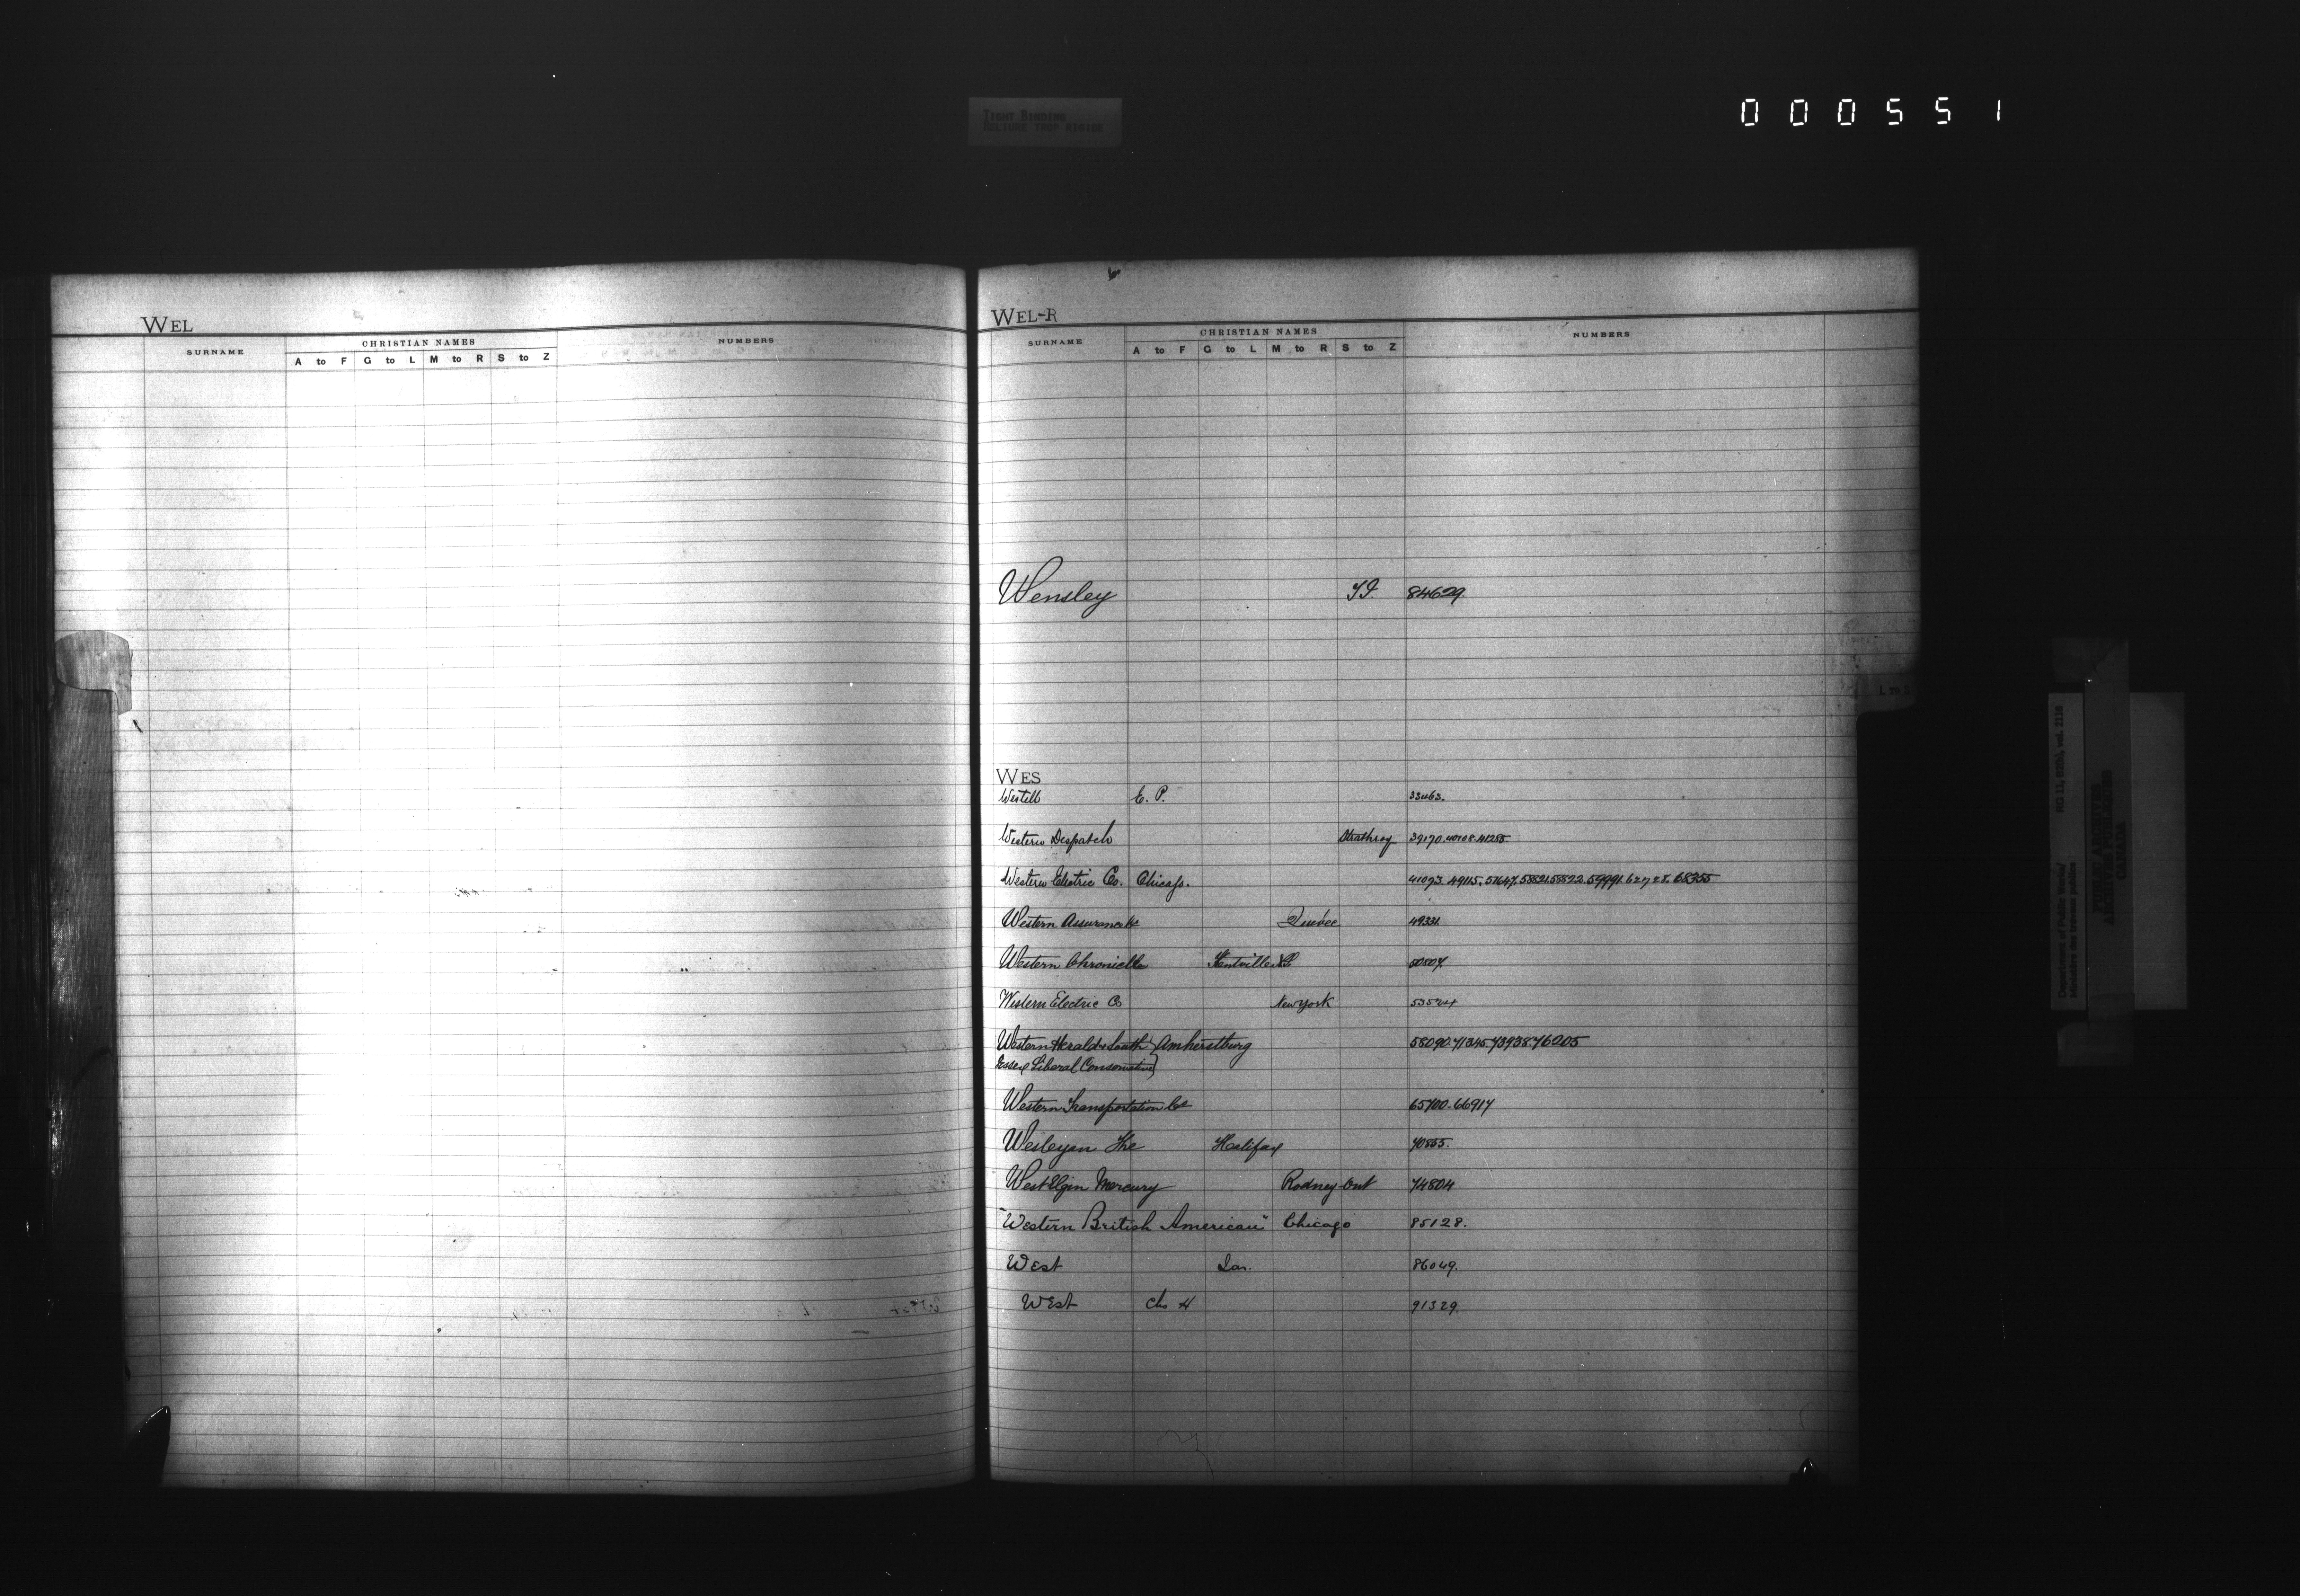 000551
TIGHT BINDING
RELIURE TROP RIGIDE
WEL
SURNAME CHRISTIAN NAMES NUMBERS
A to F G to L M to R S to Z
WEL-R
SURNAME CHRISTIAN NAMES NUMBERS
A to F G to L M to R S to Z
Wensley 84629.
WES
Westell E. P. 33463.
Western Despatch Strathroy 39170. 40108. 41255.
Western Electric Co. Chicago. 41093. 49115. 51647. 58821. 58822. 59991. 62728. 68355
Western Assurance Co Quebec 49331.
Western Chronicle Kentville NS 50507.
Western Electric Co New York 53524
Western Herald & South Amherstburg 58090. 71345. 73938. 76205
Essex Liberal Conservative
Western Transportation Co 65700. 66917
Wesleyan The Halifax 70855.
West Elgin Mercury Rodney Ont 74804
"Western British American" Chicago 85128.
West Jas. 86049.
West Chs H 91329.
L TO
Department of Public Works/
Ministère des travaux publics
RG 11, B2(b), vol. 2116
PUBLIC ARCHIVES
ARCHIVES PUBLIQUES
CANADA